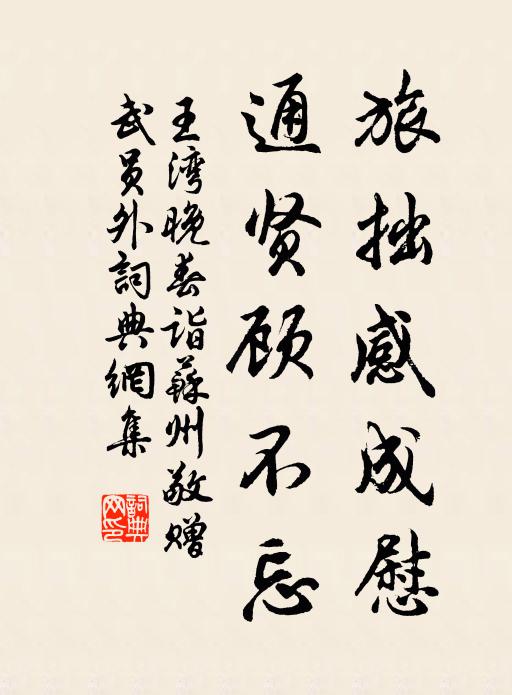 旅拙感成慰
通贤顾不忘
王湾晚春诣蘇州敬赠
武员外詞典網集
詞典網印